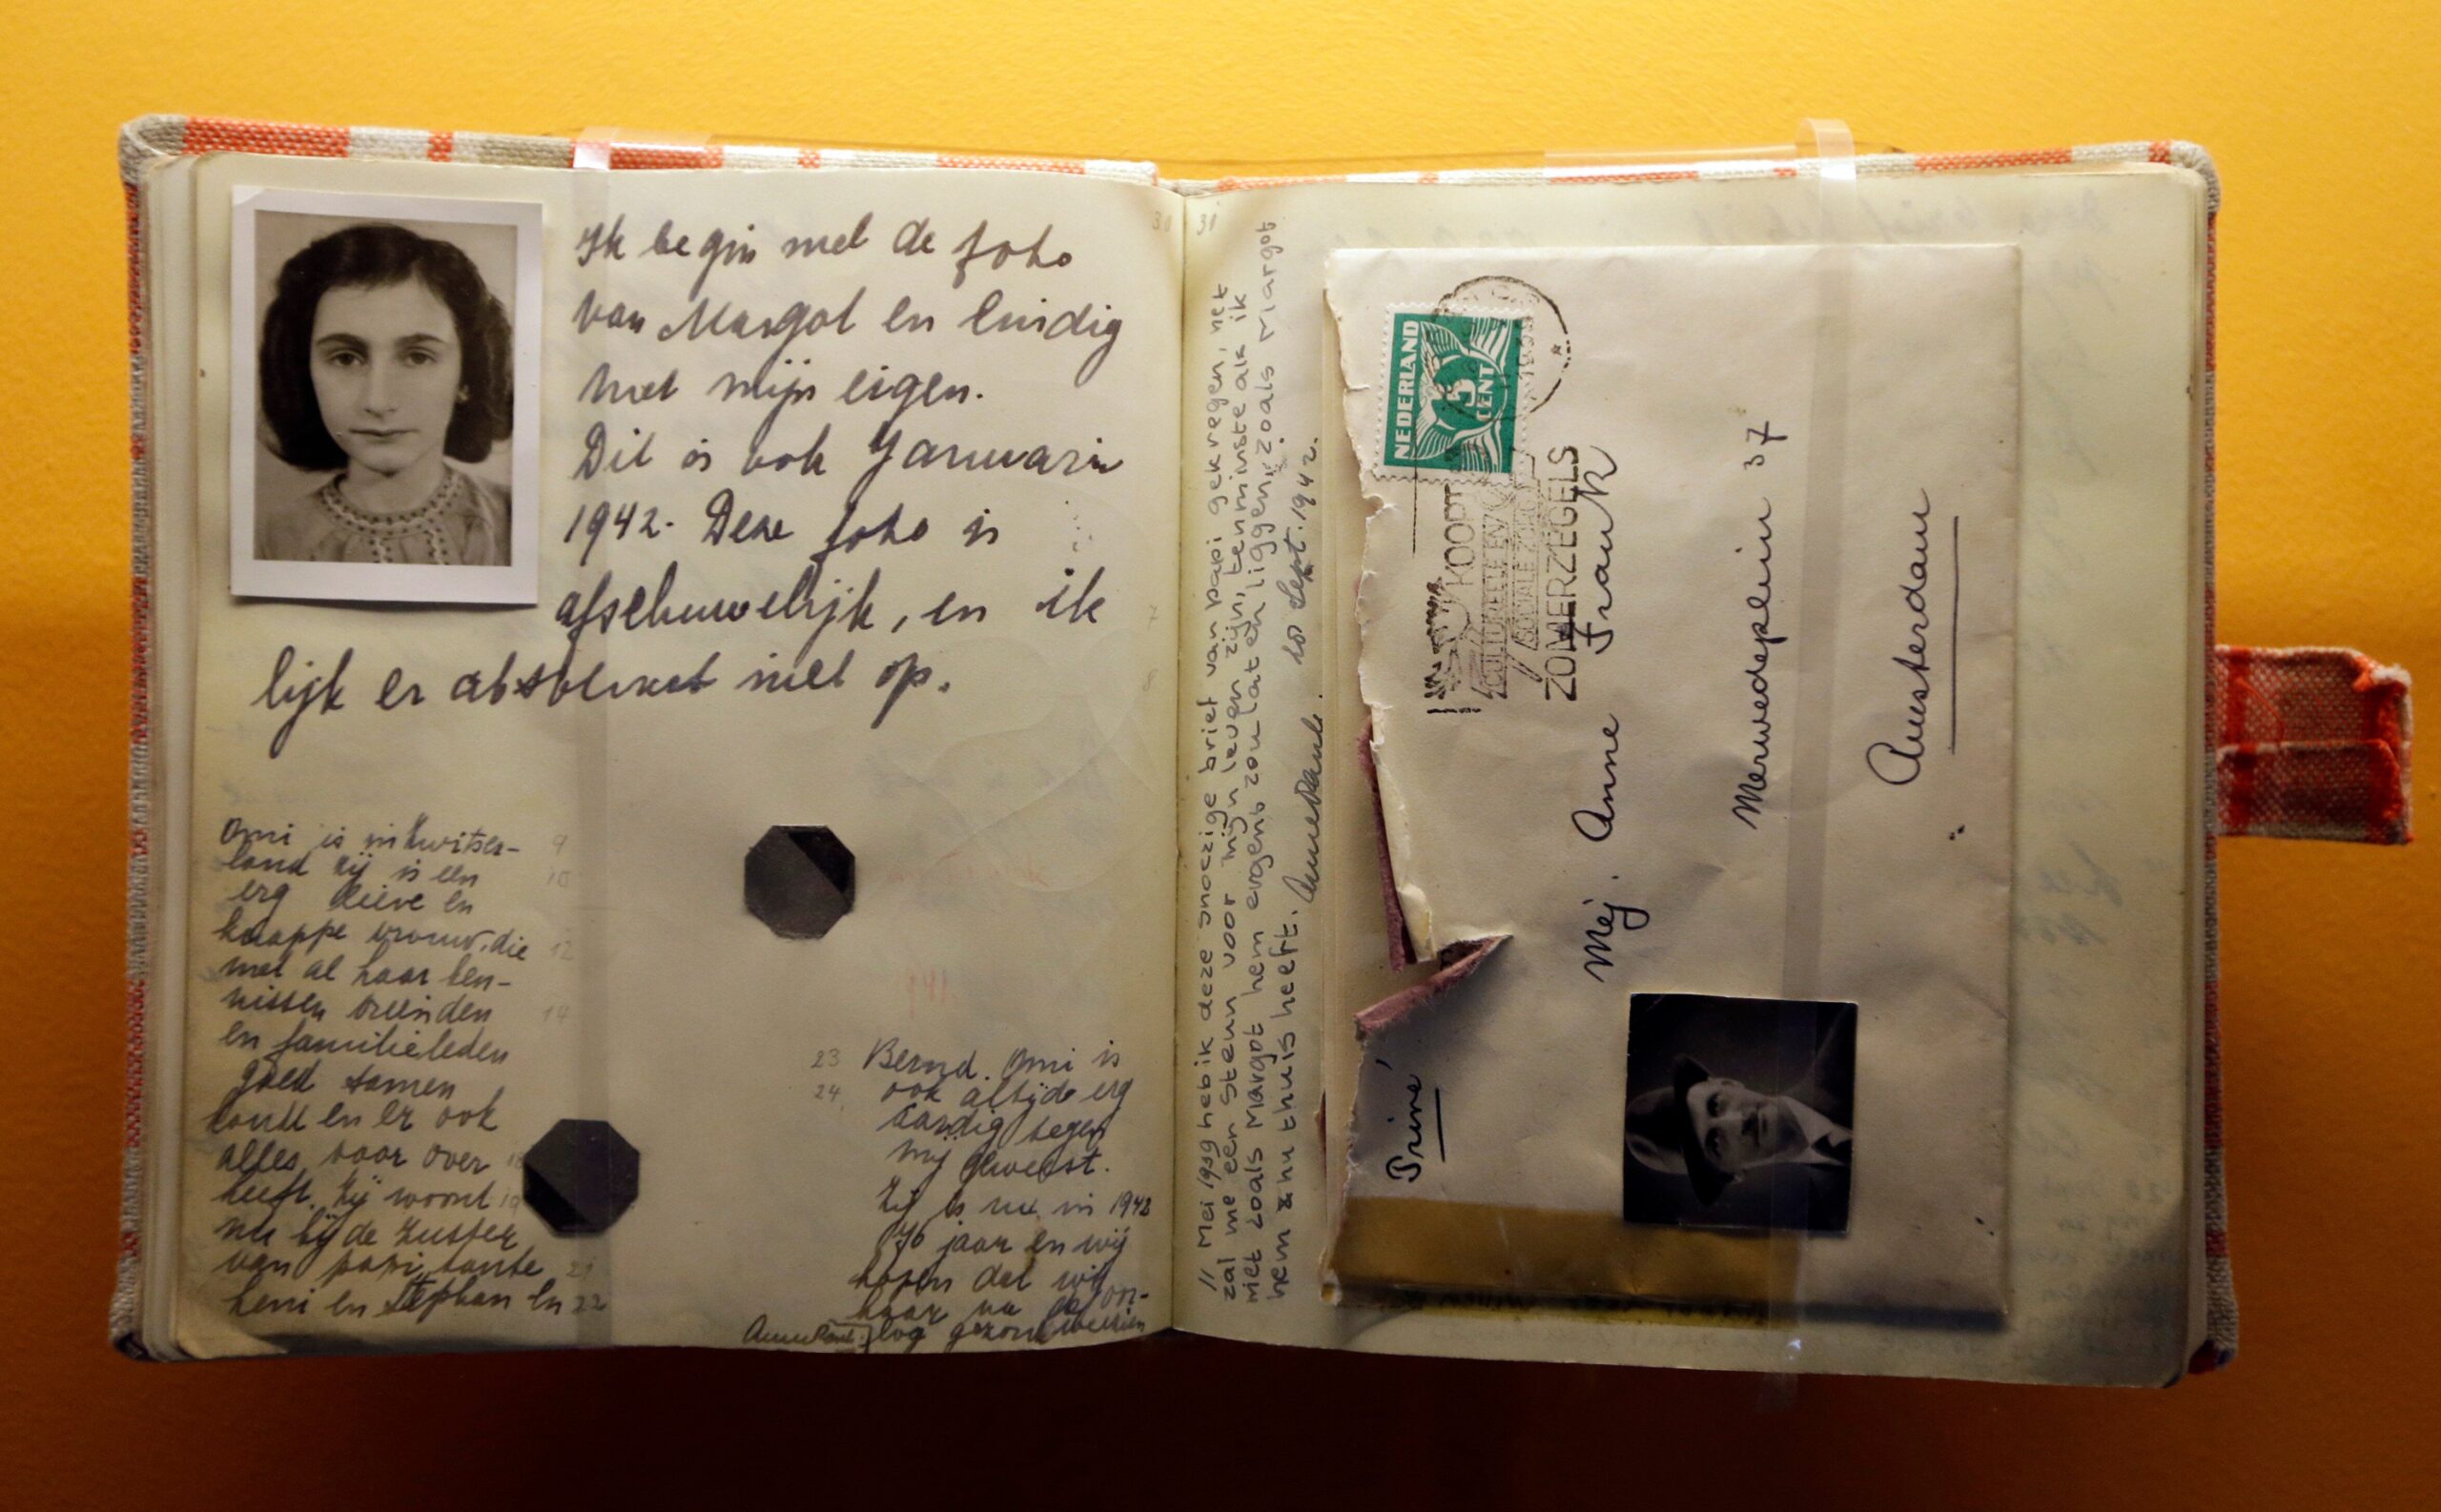 Ik begin met de foto
van Margot en eindig
met mijn eigen.
Dit is ook Januari
1942. Deze foto is
afschuwelijk, en ik
lijk er absoluut niet op.
30
Omi is in Zwitser-
land Zij is een
erg lieve en
knappe vrouw, die
met al haar ken-
nissen vrienden
en familieleden
goed samen
en er ook
alles voor over
heeft. Zij woont
nu bij de zuster
van papi, tante
Leni en Stephan en
9
10
12
14
21
22
23 Bernd. Omi is
24 ook altijd erg
aardig tegen
mij geweest.
Zij is nu in 1942
76 jaar en wij
hopen dat wij
haar na de oor-
log gezond weerzien
31
11 Mei 1939 heb ik deze snoezige brief van papi gekregen, het
zal me een steun voor mijn leven zijn, tenminste als ik
niet zoals Margot hem ergens zou laten liggen, zoals Margot
hem nu thuis heeft. Anne Frank. Sept. 1942.
NEDERLAND
5
CENT
KOOPT
CULTUREELE EN
SOCIALE
ZOMERZEGELS
Mej. Anne Frank
Merwedeplein 37
Amsterdam
Privé